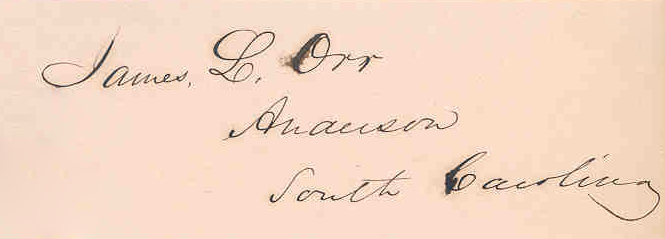 James. L. Orr
Anderson
South Carolina